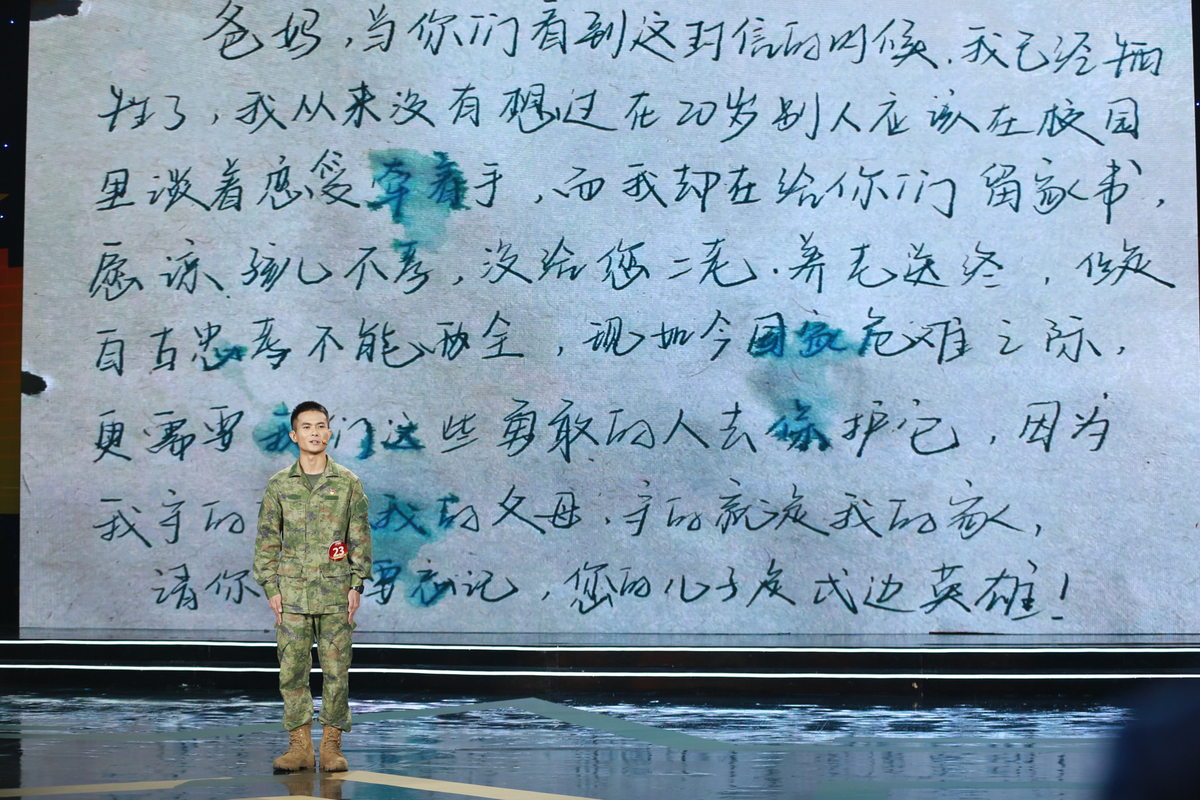 爸妈,当你们看到这封信的时候,我已经牺
牲了,我从来没有想过在20岁别人应该在校园
里谈着恋爱牵着手,而我却在给你们留家书,
愿谅孩儿不孝,没给您二老.养老送终,但是
自古忠孝不能两全,现如今国家危难之际,
更需要我们这些勇敢的人去保护它,因为
我守的 我的父母,守的就是我的家,
请你 要忘记,您的儿子是戍边英雄!
23